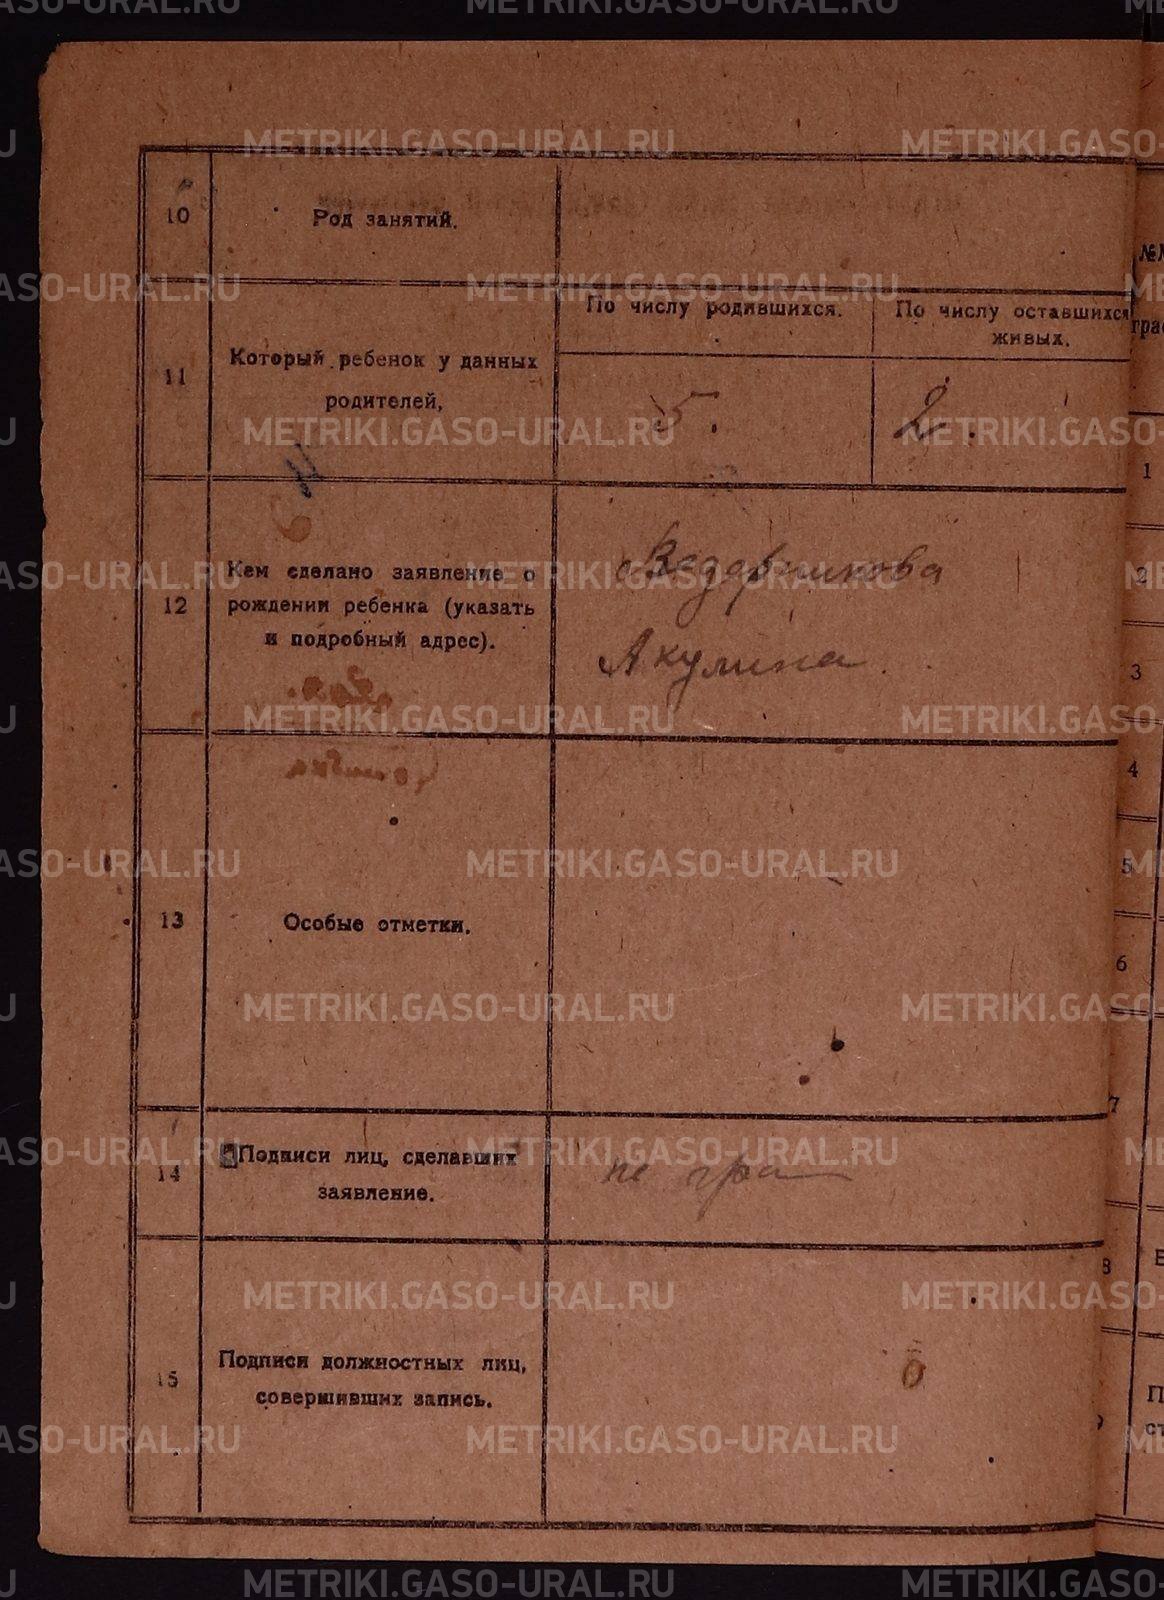 10
Род занятий.
11
Который ребенок у данных
родителей,
По числу родившихся.
По числу оставшихся
живых.
5.
2.
12
Кем сделано заявление о
рождении ребенка (указать
и подробный адрес).
Ведерникова
Акулина.
13
Особые отметки.
14
Подписи лиц, сделавших
заявление.
не гра
15
Подписи должностных лиц,
совершивших запись.
1
2
3
4
5
6
7
8
METRIKI.GASO-URAL.RU